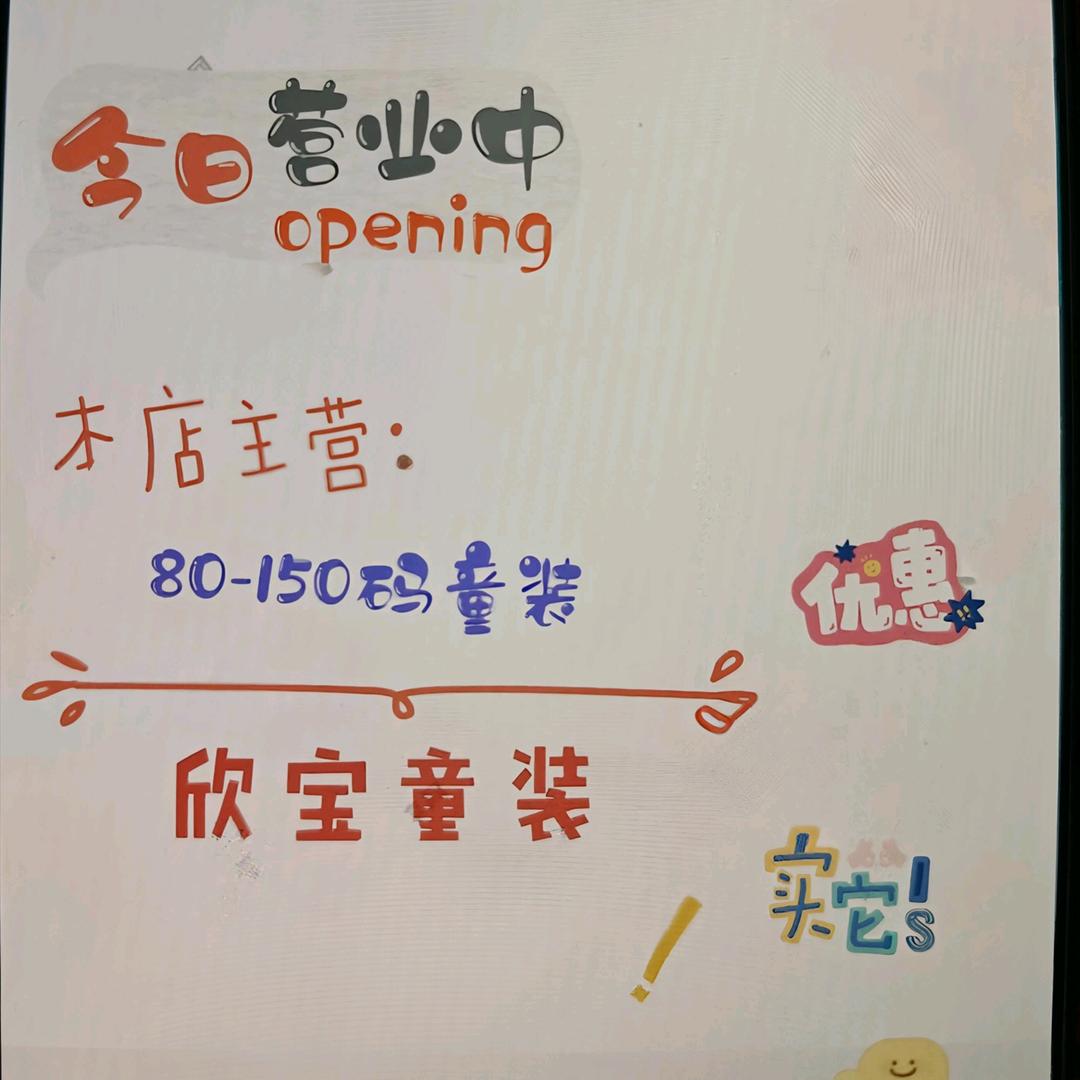 今日营业中
opening
本店主营:
80-150码童装
优惠
欣宝童装
实它!s
!